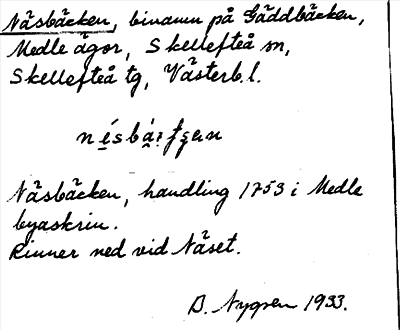 Näsbäcken, binamn på Gäddbäcken,
Medle ägor, Skellefteå sn,
Skellefteå tg, Västerb.l.
Näsbäcken, handling 1753 i Medle
byaskrin.
Rinner ned vid Näset.
B. Nygren 1933.